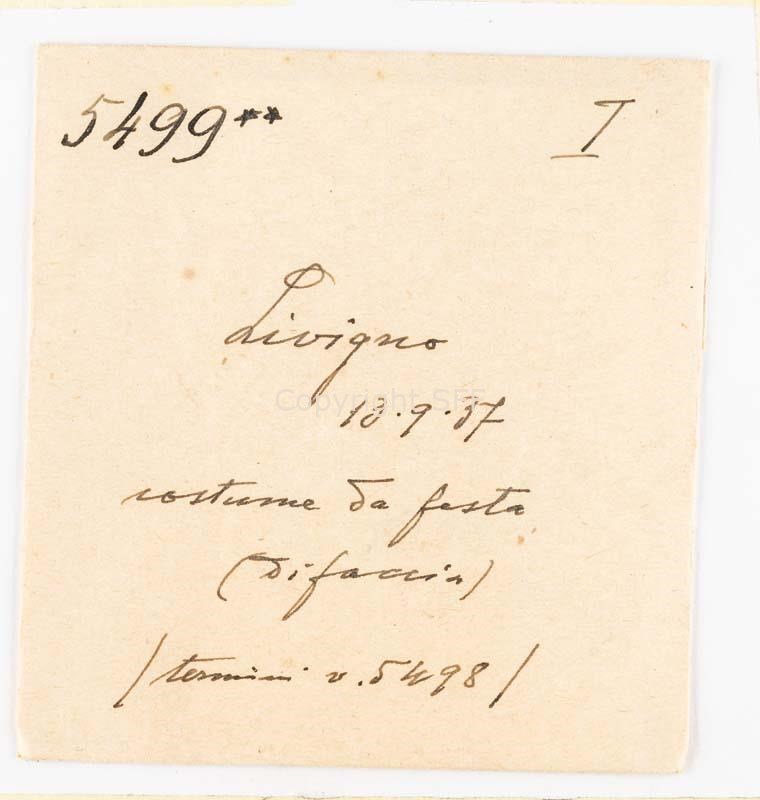 5499** I
Livigno
18.9.37
costume da festa
(di faccia)
/termini v. 5498/
Copyright